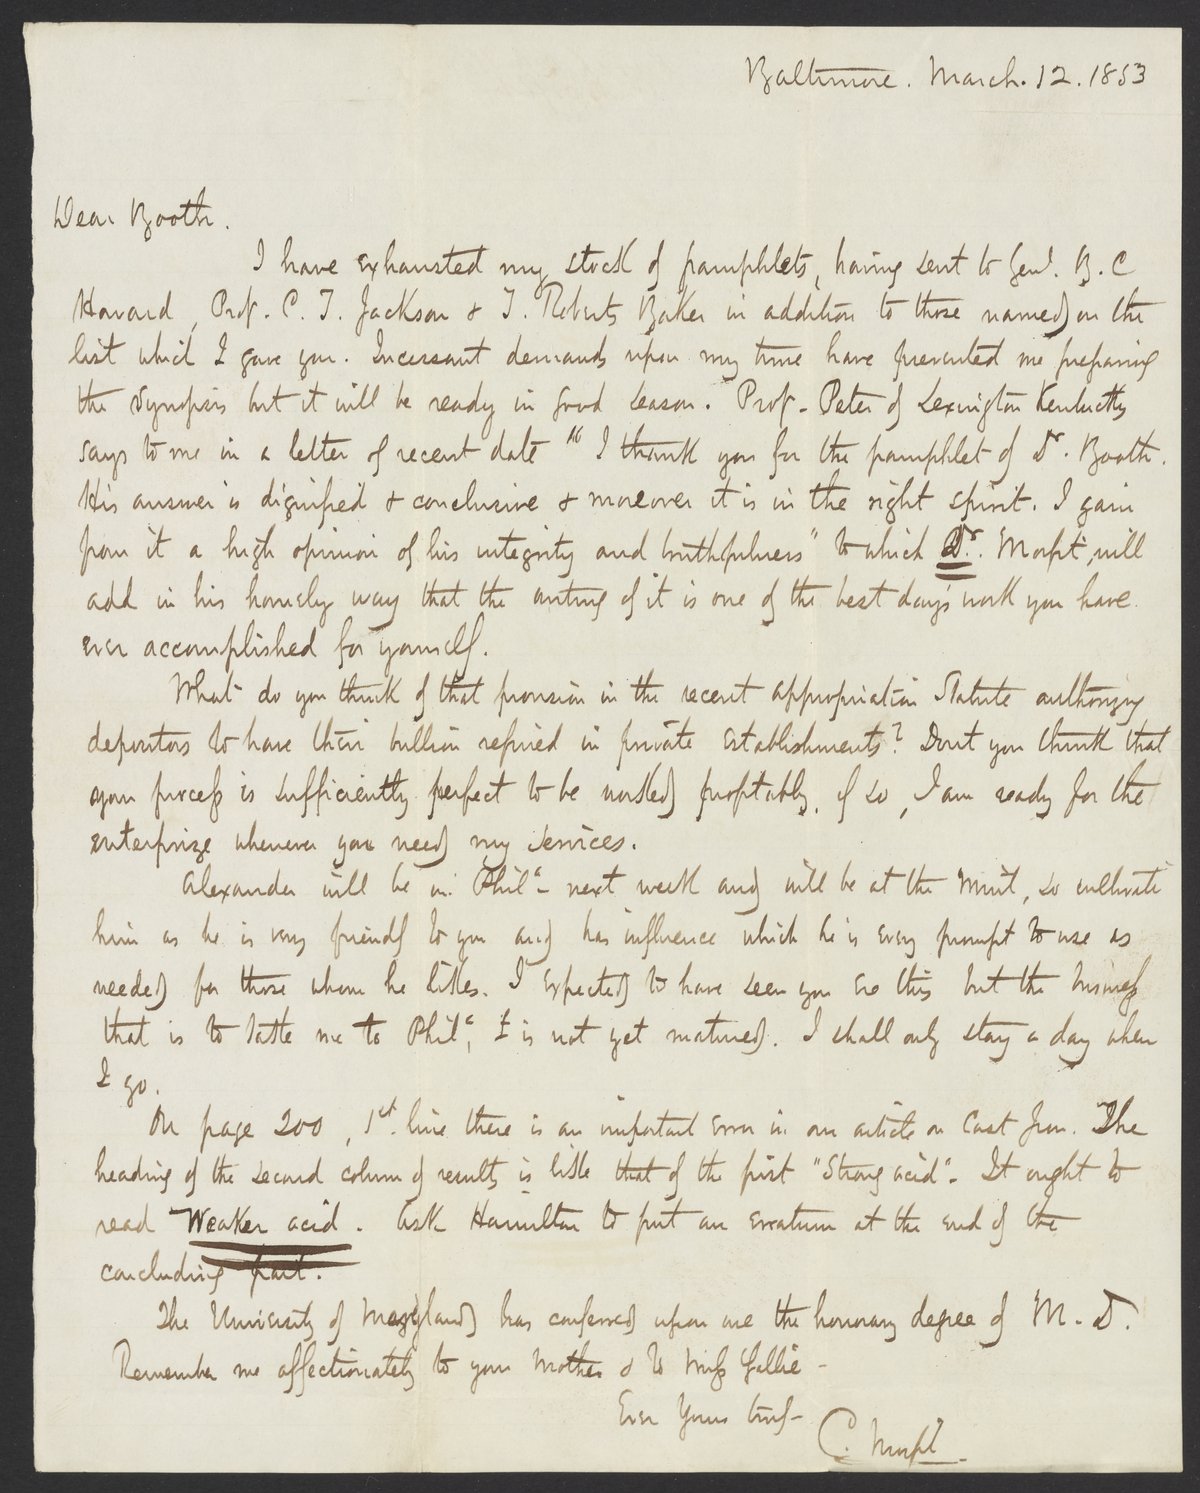 Baltimore. March. 12. 1853
Dear Booth.
I have exhausted my stock of pamphlets, having sent to Genl. B. C
Howard, Prof. C. T. Jackson & T. Roberts Baker in addition to those named on the
list which I gave you. Incessant demands upon my time have prevented me preparing
the Synopsis but it will be ready in good season. Prof. Peter of Lexington Kentucky
says to me in a letter of recent date "I thank you for the pamphlet of Dr. Booth.
His answer is dignified & conclusive & moreover it is in the right spirit. I gain
from it a high opinion of his integrity and truthfulness" to which Dr. Morfit, will
add in his homely way that the writing of it is one of the best day's work you have
ever accomplished for yourself.
What do you think of that provision in the recent appropriation Statute authorizing
depositors to have their bullion refined in private establishments? Dont you think that
your process is sufficiently perfect to be worked profitably, if so, I am ready for the
enterprize whenever you need my services.
Alexander will be in Phila- next week and will be at the Mint, so cultivate
him as he is very friendly to you and has influence which he is every prompt to use as
needed for those whom he likes. I expected to have seen you ere this but the business
that is to take me to Phila, is not yet matured. I shall only stay a day when
I go.
On page 200, 1st. line there is an important error in our article on Cast Iron. The
heading of the second column of results is like that of the first "Strong acid". It ought to
read Weaker acid. Ask Hamilton to put an erratum at the end of the
concluding part.
The University of Maryland has conferred upon me the honorary degree of M. D.
Remember me affectionately to your Mother & to Miss Sallie -
Ever Yours truly -
C. Morfit